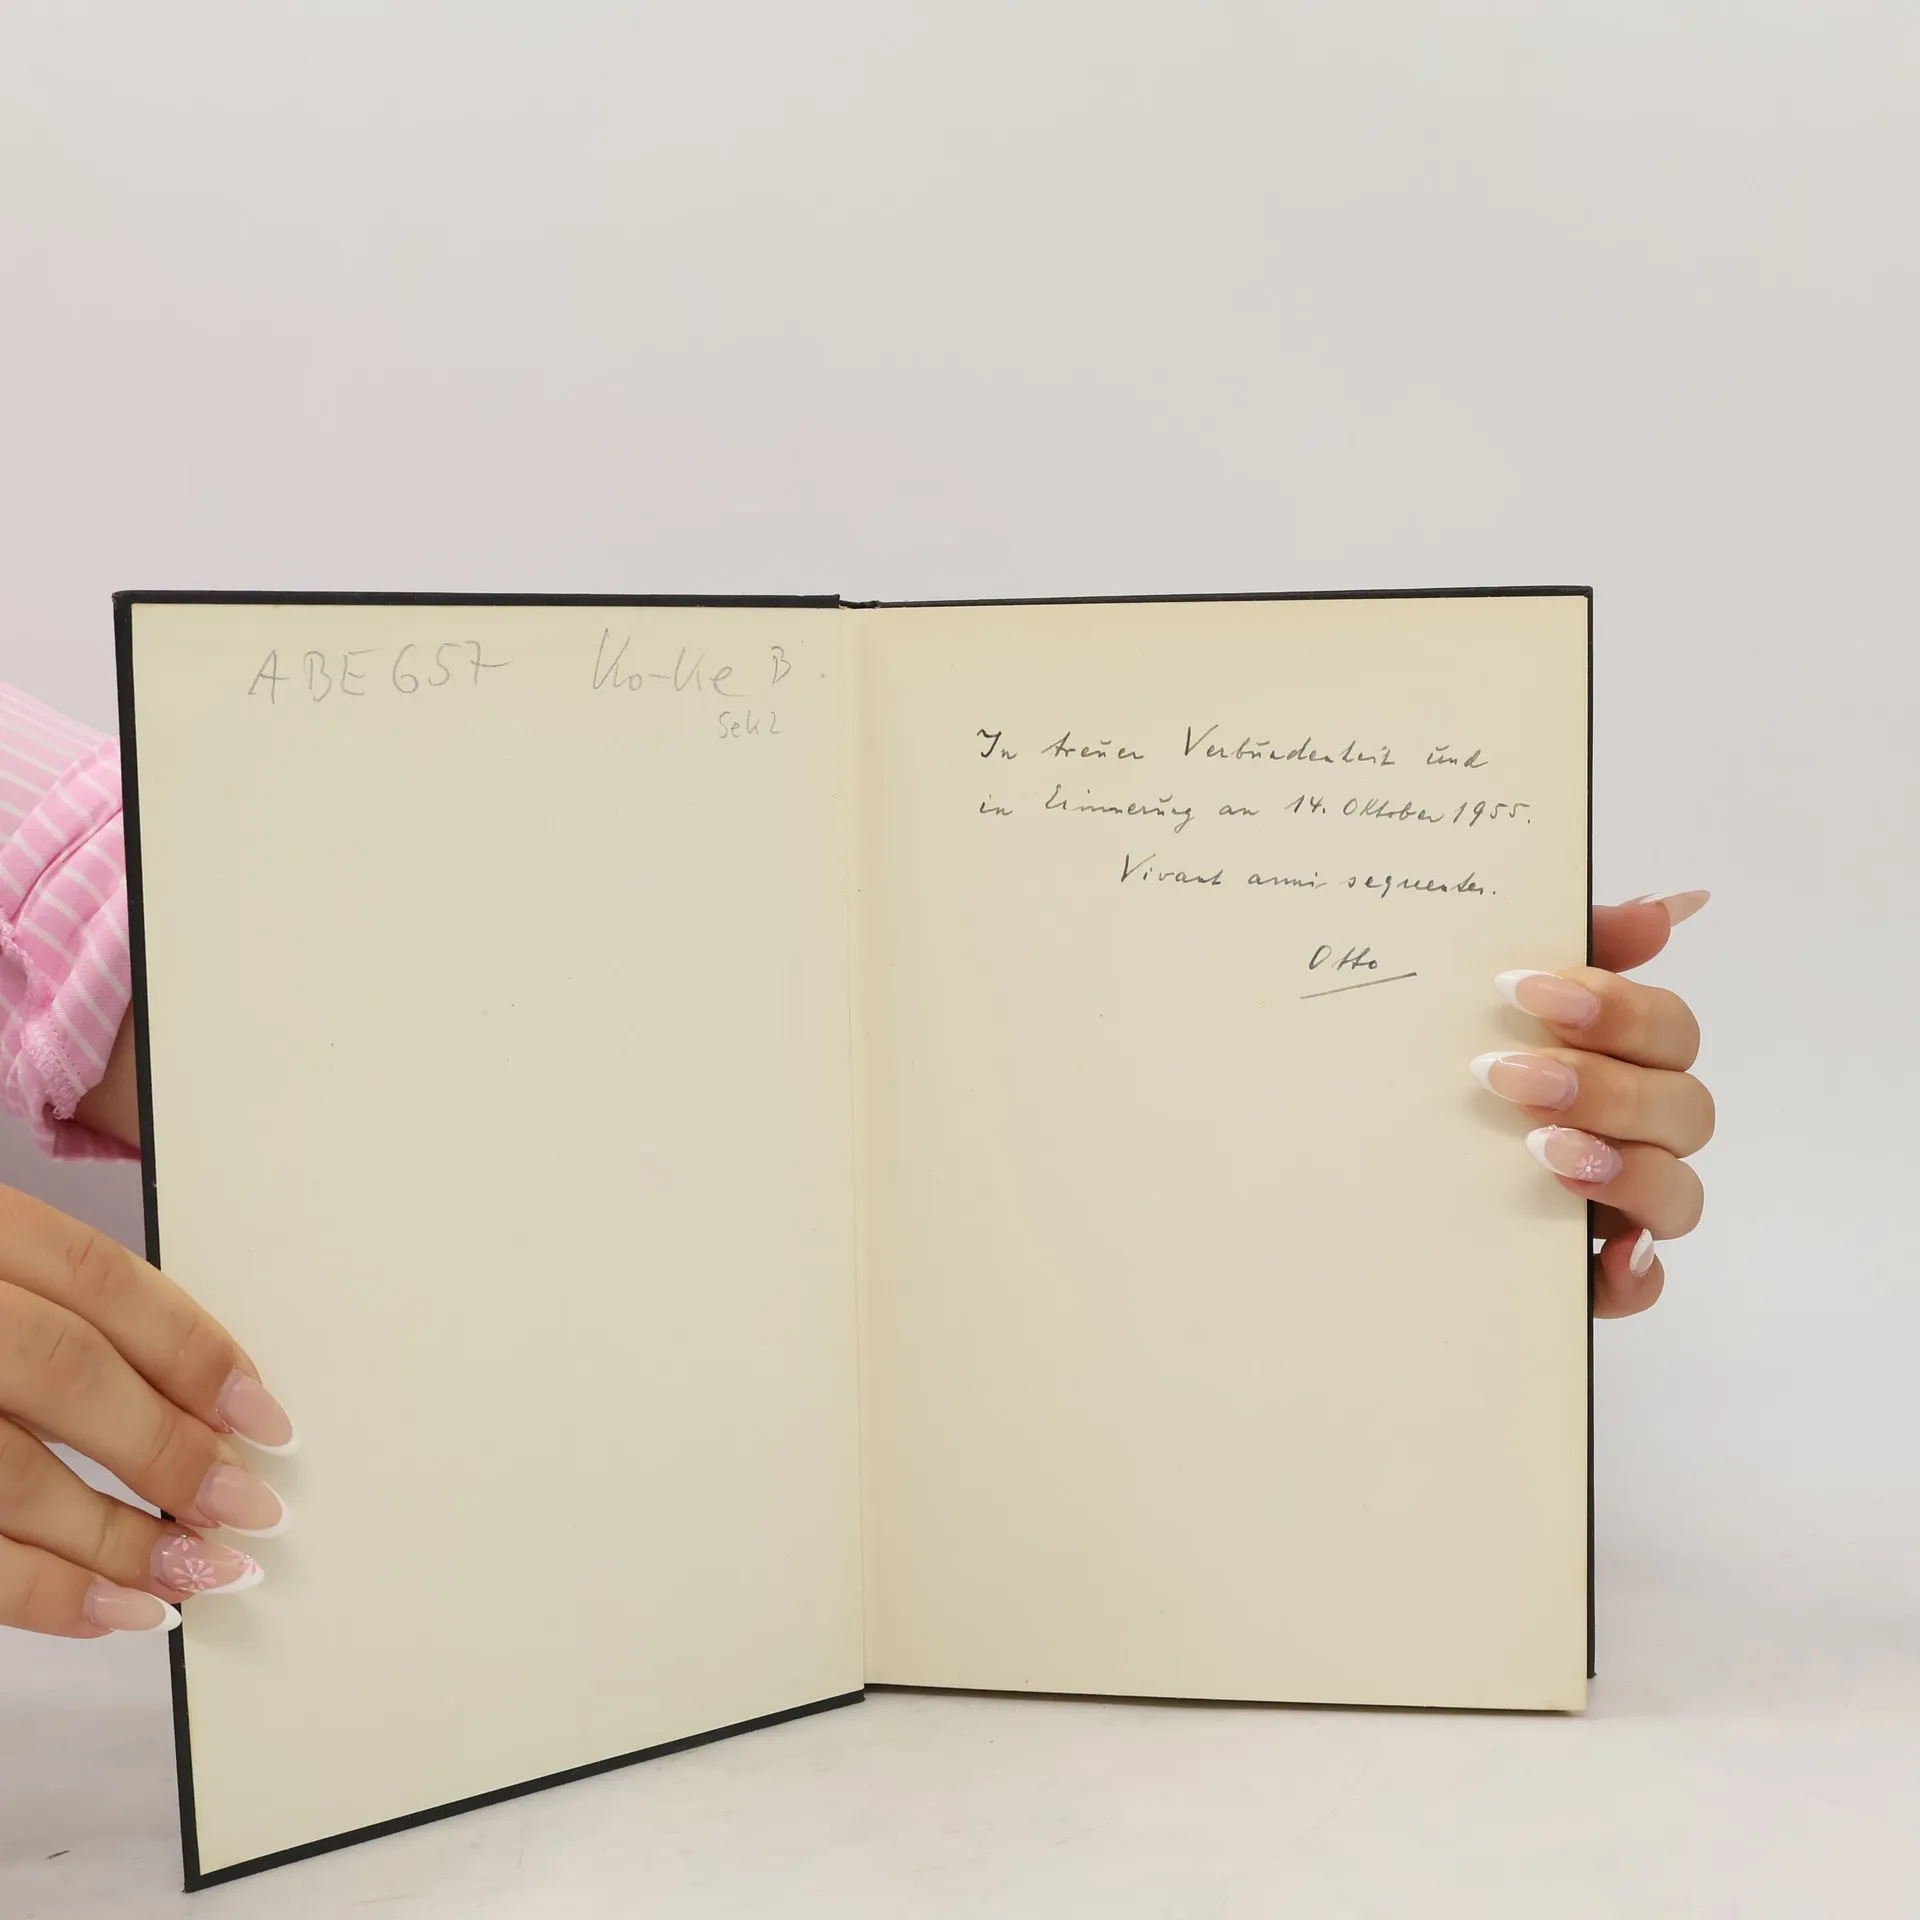 ABE 657 Ko-Ke B.
Sek 2
In treuer Verbundenheit und
in Erinnerung an 14. Oktober 1955.
Vivant anni sequentes.
Otto